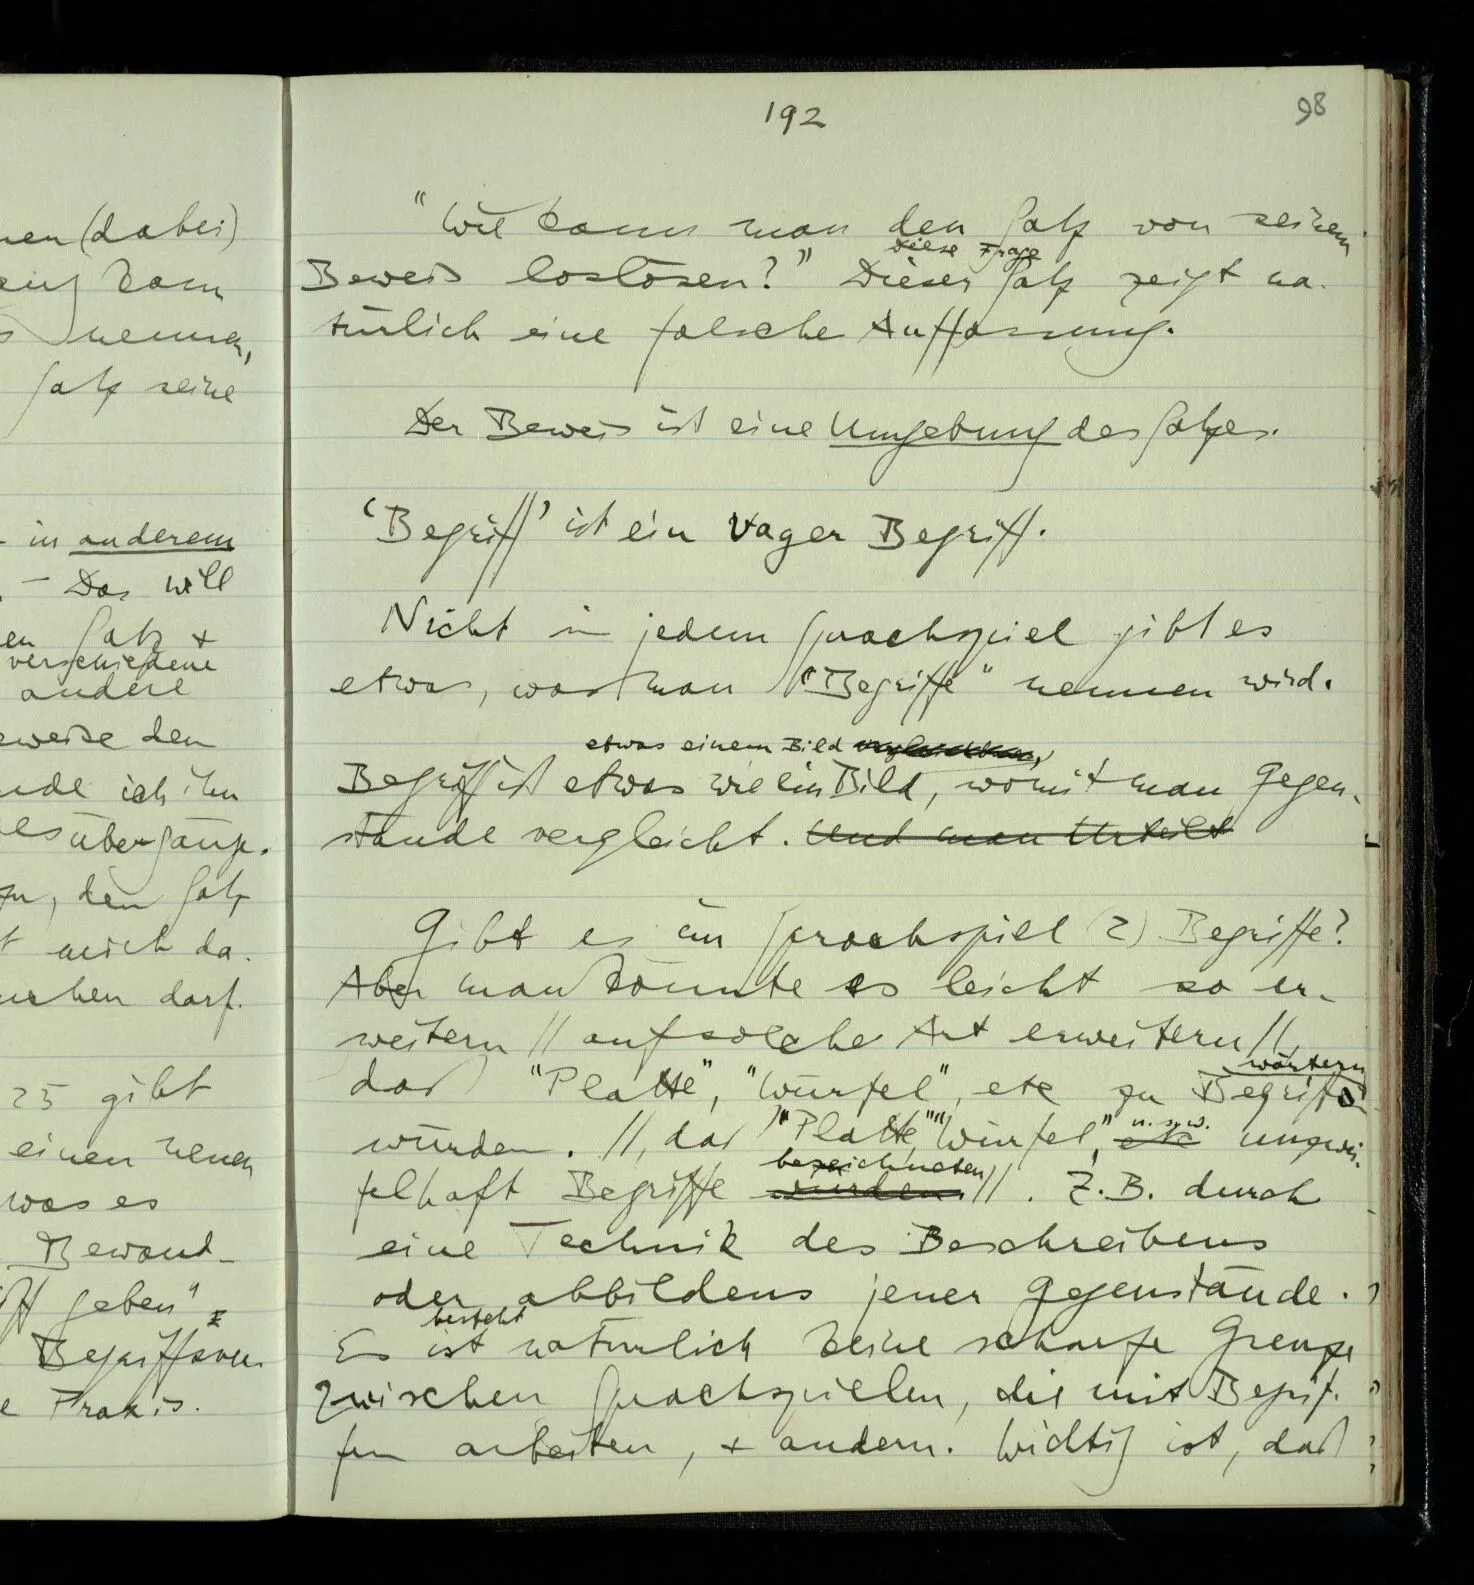 nen (dabei)
kann
nennen,
Satz seine
- in anderem
. – Das will
en Satz +
verschiedene
andere
eweise den
nde ich ihn
übergänge.
, den Satz
t mich da-
chen darf.
25 gibt
einen neuen
was es
Bewand-
geben"
Begriffsver
e Praxis.
192
98
"Wie kann man den Satz von seinem
Diese Frage
Beweis loslösen?" Dieser Satz zeigt na-
türlich eine falsche Auffassung.
Der Beweis ist eine Umgebung des Satzes.
'Begriff' ist ein vager Begriff.
Nicht in jedem Sprachspiel gibt es
etwas, was man "Begriffe" nennen wird.
etwas einem Bild
Begriff ist etwas wie ein Bild, womit man Gegen-
stände vergleicht. Und man Urteilt
Gibt es im Sprachspiel (2) Begriffe?
Aber man könnte es leicht so er-
weitern // auf solche Art erweitern //,
wörtern
daß "Platte", "Würfel", etc zu Begriffs
würden. //, daß "Platte", "Würfel", etc ungwei-
u.s.w.
bezeichneten
felhaft Begriffe würden. //. Z.B. durch
eine Technik des Beschreibens
oder abbildens jener Gegenstände.
besteht
Es ist natürlich keine scharfe Grenze
zwischen Sprachspielen, die mit Begrif-
fen arbeiten, + andern. Wichtig ist, daß